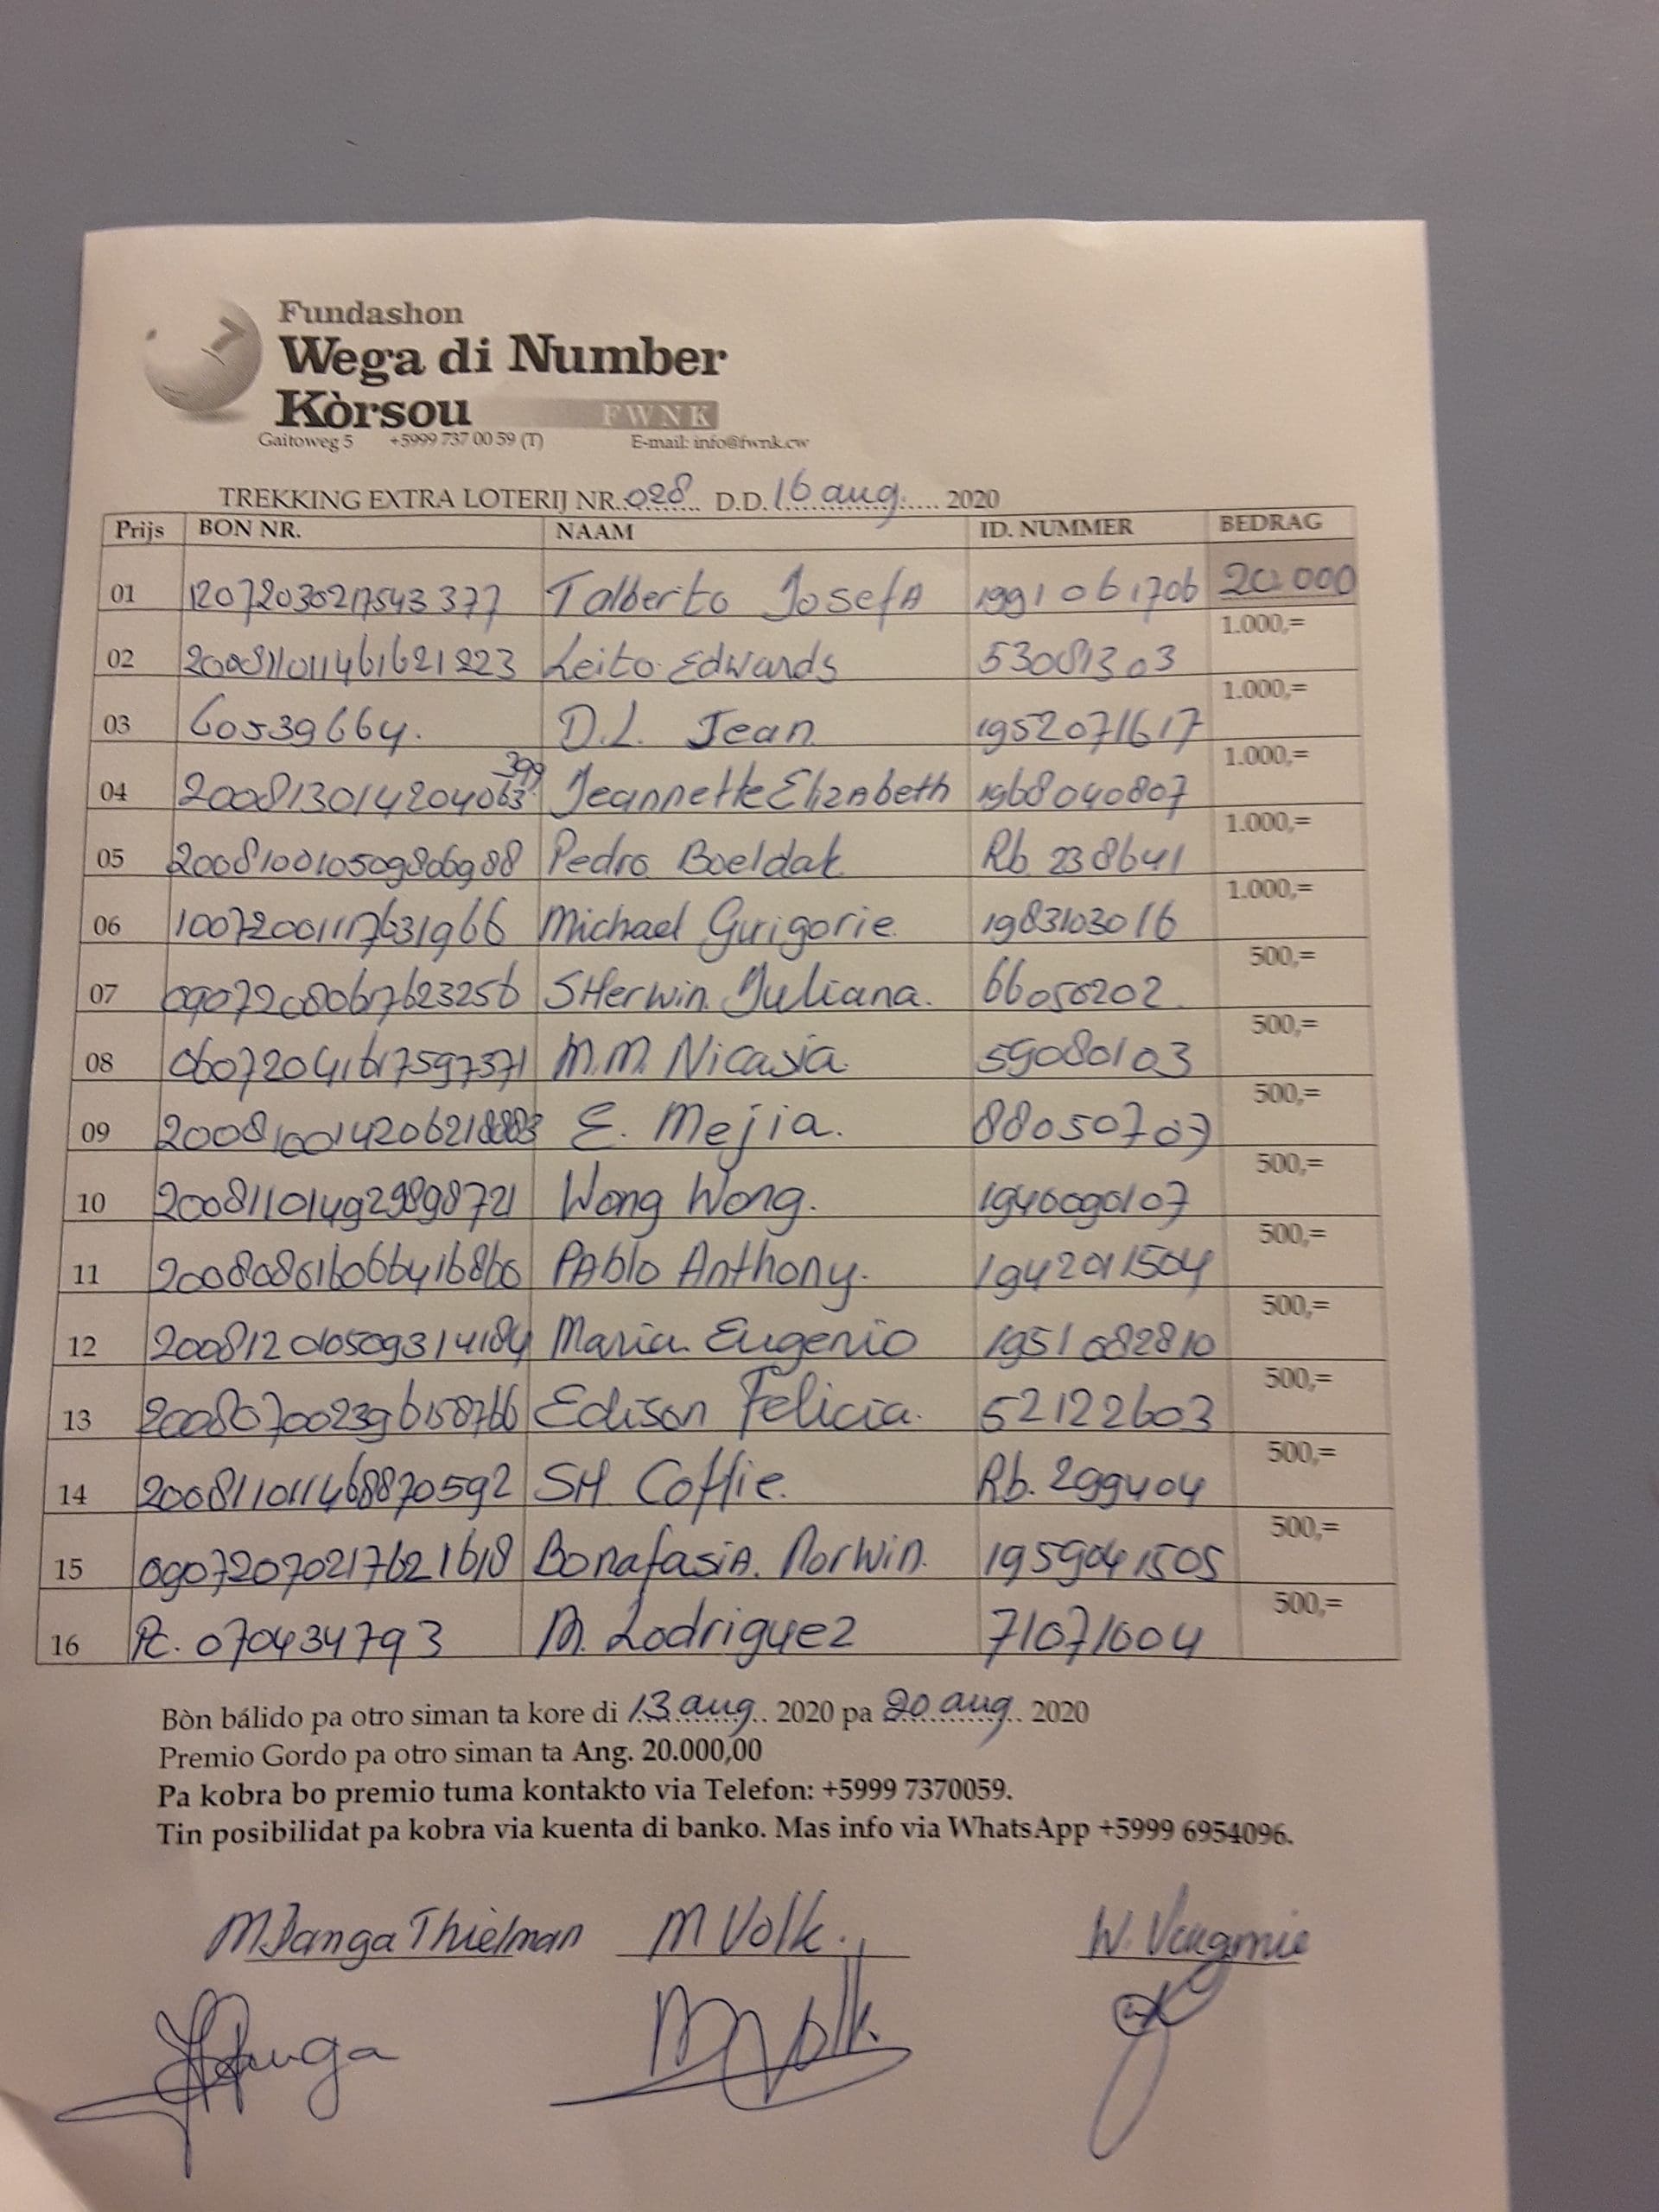 Fundashon
Wega di Number
Kòrsou FWNK
Gaitoweg 5 +5999 737 00 59 (T) E-mail: info@fwnk.cw
TREKKING EXTRA LOTERIJ NR. 028 D.D. 16 aug. 2020
Prijs BON NR. NAAM ID. NUMMER BEDRAG
01 12072030217543377 Talberto JosefA 1991061706 20.000
02 200811011461621223 Leito Edwards 53081303 1.000,=
03 60539664. D.L. Jean 1952071617 1.000,=
04 200813014204063 399 Jeannette ElizAbeth 1968040807 1.000,=
05 200810010509806988 Pedro Boeldak Rb 238641 1.000,=
06 10072001117631966 Michael Gurigorie 1983103016 1.000,=
07 0907208067623256 SHerwin Juliana. 66050202 500,=
08 06072041617597371 M.M. Nicasia 59080103 500,=
09 E. Mejia. 88050707 500,=
10 200811014929898721 Wong Wong. 1940090107 500,=
11 200808616066416860 PAblo Anthony. 1942011504 500,=
12 200812010509314184 Maria Eugenio 1951082810 500,=
13 200807002396158766 Edison Felicia. 52122603 500,=
14 200811011468870592 SH Coffie. Rb. 299404 500,=
15 09072070217621618 BonafasiA. Norwin. 1959041505 500,=
16 Pc. 070434793 M. Lodriguez 71071004 500,=
Bòn bálido pa otro siman ta kore di 13 aug. 2020 pa 20 aug. 2020
Premio Gordo pa otro siman ta Ang. 20.000,00
Pa kobra bo premio tuma kontakto via Telefon: +5999 7370059.
Tin posibilidat pa kobra via kuenta di banko. Mas info via WhatsApp +5999 6954096.
M Janga Thielman M Volk. W.